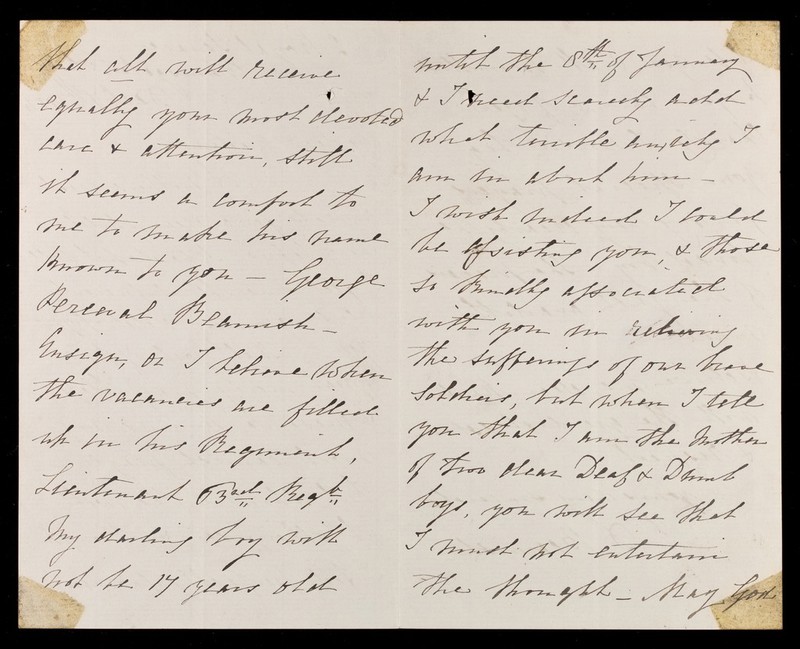 that all will receive
equally your most devoted
care & attention, still
it seems a comfort to
me to make his name
known to you - George
Perceval Beamish -
Ensign, or I believe when
the vacancies are filled
up in his Regiment,
Lieutenant 63rd Regt.
My darling boy will
not be 17 years old
until the 8th of January
& I need scarcely add
what terrible anxiety I
am in about him -
I wish indeed I could
be assisting you, & those
so kindly associated
with you in relieving
the sufferings of our brave
Soldiers, but when I tell
you that I am the Mother
of two dear Deaf & Dumb
boys, you will see that
I must not entertain
the thought - May God